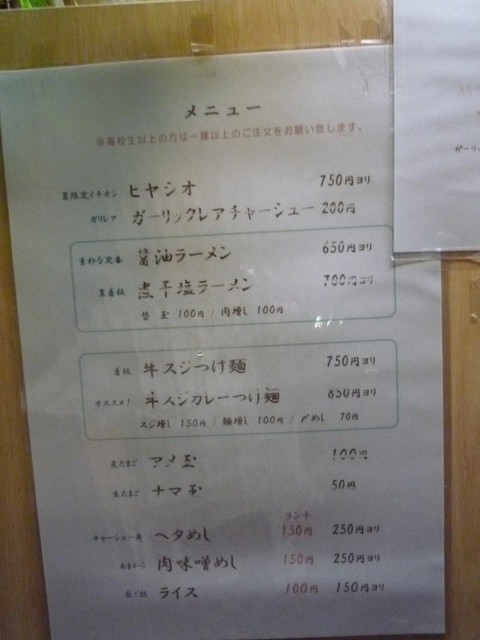 メニュー
※高校生以上の方は一種以上のご注文をお願い致します。
夏限定イチオシ ヒヤシオ 750円ヨリ
ガリレア ガーリックレアチャーシュー 200円
素朴な定番 醤油ラーメン 650円ヨリ
裏看板 煮干塩ラーメン 700円ヨリ
替玉 100円 / 肉増し 100円
看板 牛スジつけ麺 750円ヨリ
オススメ! 牛スジカレーつけ麺 850円ヨリ
スジ増し 150円 / 麺増し 100円 / 〆めし 70円
煮たまご アメ玉 100円
生たまご ナマ玉 50円
ランチ
チャーシュー丼 ヘタめし 150円 250円ヨリ
肉味噌めし 150円 250円ヨリ
白ご飯 ライス 100円 150円ヨリ